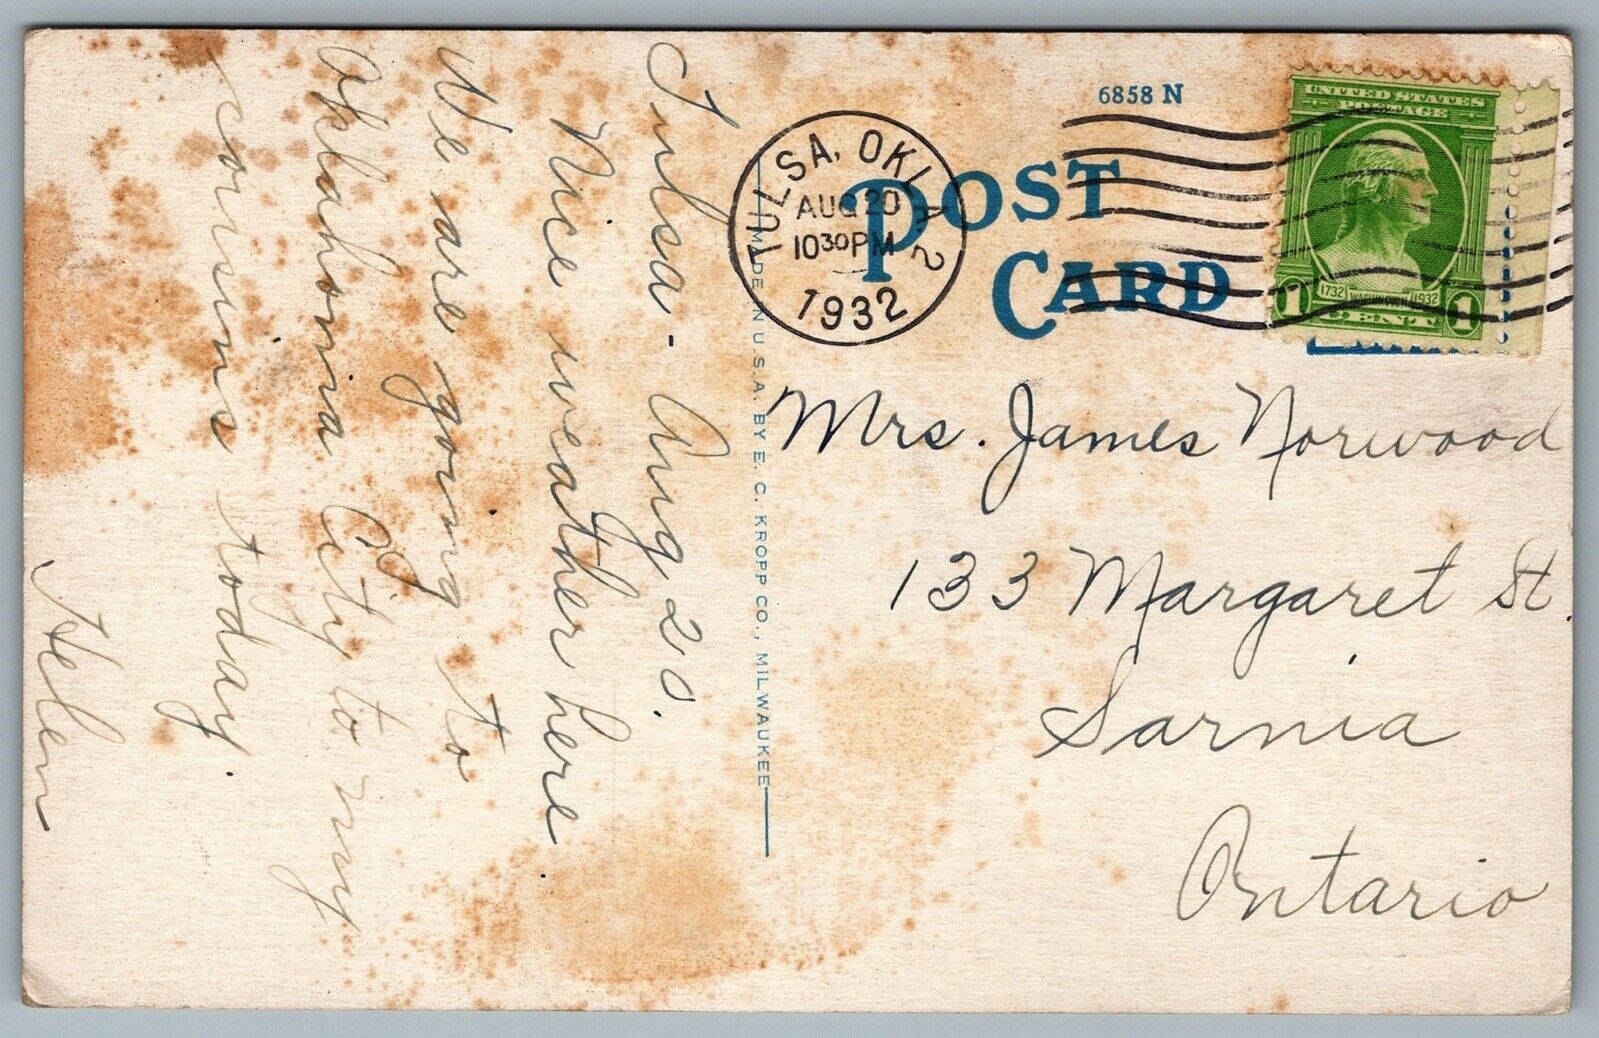 Tulsa - Aug 20.
Nice weather here.
We are going to
Oklahoma City to my
cousins today.
Helen
MADE IN U.S.A. BY E. C. KROPP CO., MILWAUKEE
6858 N
POST
CARD
TULSA, OKLA. 2
AUG 20
10 30 PM
1932
UNITED STATES
POSTAGE
1732 WASHINGTON 1932
1 CENT 1
Mrs. James Norwood
133 Margaret St.
Sarnia
Ontario